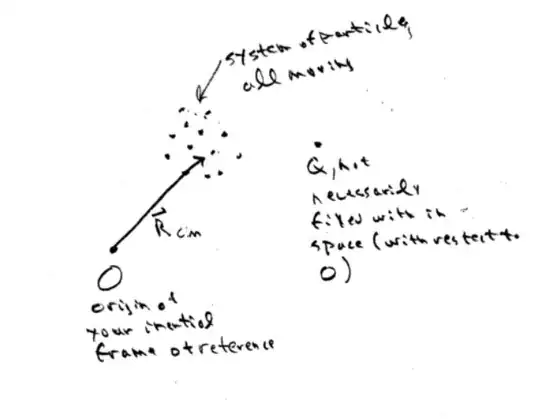 system of particles,
all moving
Q, not
necessarily
fixed with in
space (with restect to
O)
R cm
O
origin of
your inertial
frame of reference